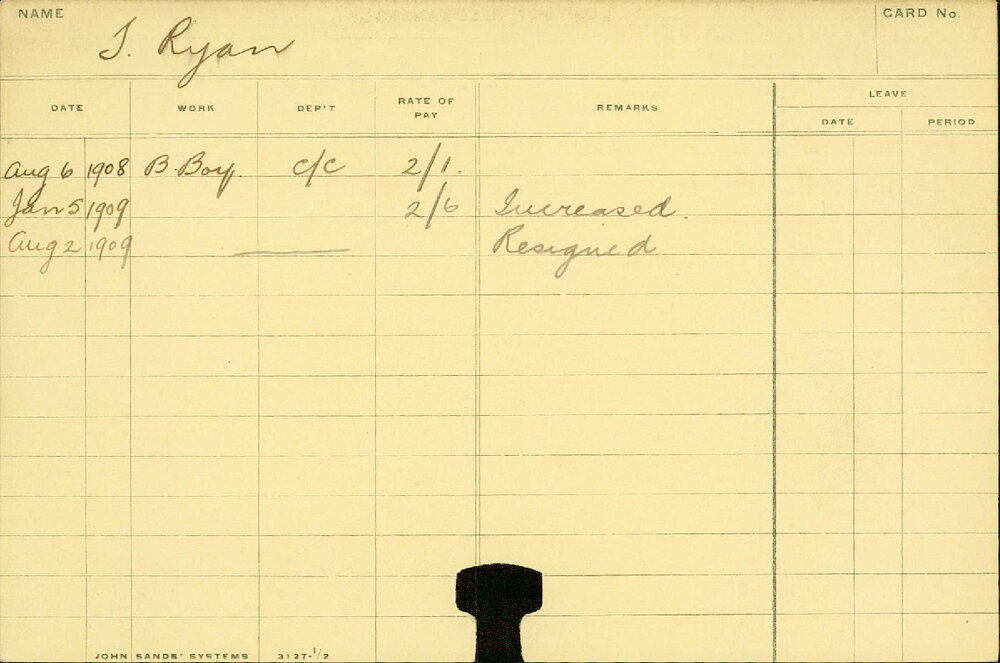 NAME
CARD No.
T. Ryan
DATE WORK DEP'T RATE OF PAY REMARKS LEAVE
DATE PERIOD
Aug 6 1908 B. Boy. C/C 2/1.
Jan 5 1909 2/6 Increased.
Aug 2 1909 Resigned
JOHN SANDS' SYSTEMS 3127-1/2